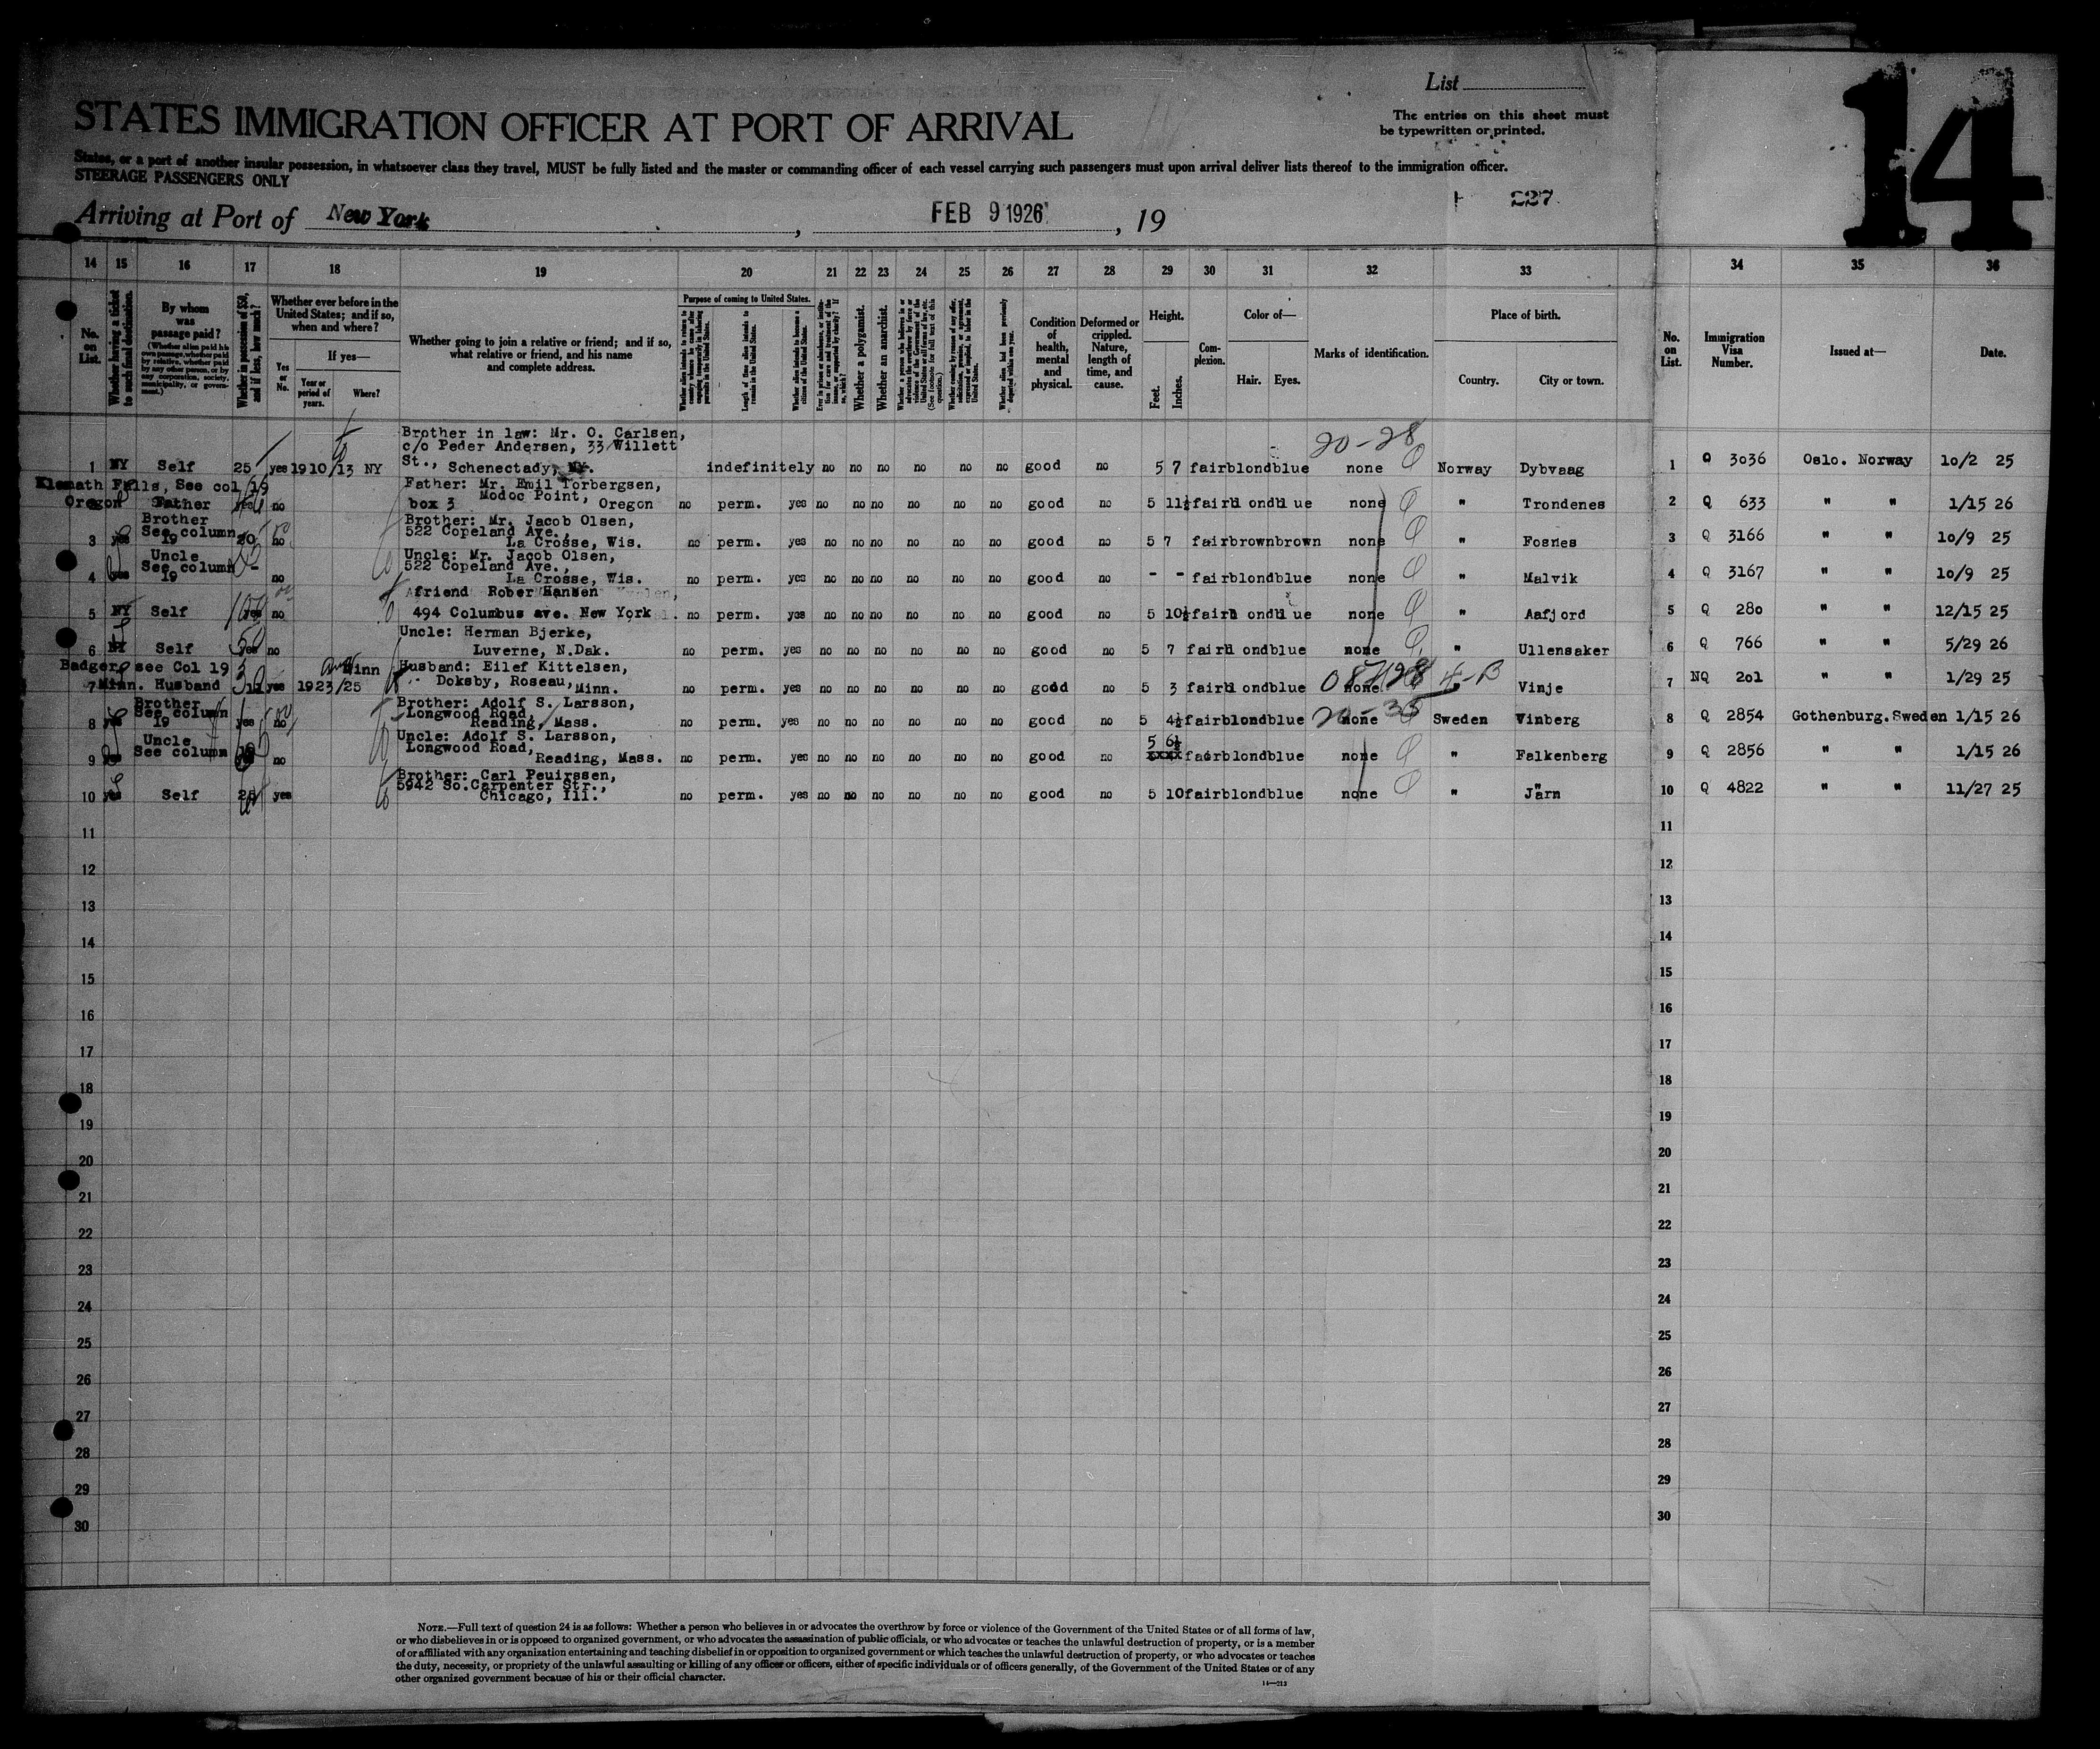 List
14
STATES IMMIGRATION OFFICER AT PORT OF ARRIVAL
The entries on this sheet must
be typewritten or printed.
States, or a port of another insular possession, in whatsoever class they travel, MUST be fully listed and the master or commanding officer of each vessel carrying such passengers must upon arrival deliver lists thereof to the immigration officer.
STEERAGE PASSENGERS ONLY
227
Arriving at Port of New York, FEB 9 1926, 19
14 15 16 17 18 19 20 21 22 23 24 25 26 27 28 29 30 31 32 33 34 35 36
No. on List.
Whether having a ticket to such final destination.
By whom was passage paid?
(Whether alien paid his own passage, whether paid by relative, whether paid by any other person, or by any corporation, society, municipality, or government.)
Whether in possession of $50, and if less, how much?
Whether ever before in the United States; and if so, when and where?
Yes or No.
If yes—
Year or period of years.
Where?
Whether going to join a relative or friend; and if so, what relative or friend, and his name and complete address.
Purpose of coming to United States.
Length of time alien intends to remain in the United States.
Whether alien intends to become a citizen of the United States.
Whether a polygamist.
Whether an anarchist.
Condition of health, mental and physical.
Deformed or crippled. Nature, length of time, and cause.
Height.
Feet. Inches.
Complexion.
Color of—
Hair. Eyes.
Marks of identification.
Place of birth.
Country. City or town.
No. on List.
Immigration Visa Number.
Issued at—
Date.
20-28
Brother in law: Mr. O. Carlsen,
c/o Peder Andersen, 33 Willett
1 NY Self 25 yes 1910/13 NY St., Schenectady, NY. indefinitely no no no no no no good no 5 7 fair blond blue none Norway Dybvaag 1 Q 3036 Oslo. Norway 10/2 25
Klamath Falls, See col 19 Father: Mr. Emil Torbergsen,
Modoc Point,
Oregon Father yes no box 3 Oregon no perm. yes no no no no no no good no 5 11½ fair blond blue none " Trondenes 2 Q 633 " " 1/15 26
Brother Brother: Mr. Jacob Olsen,
See column 522 Copeland Ave.,
3 yes 19 20 no La Crosse, Wis. no perm. yes no no no no no no good no 5 7 fair brown brown none " Fosnes 3 Q 3166 " " 10/9 25
Uncle Uncle: Mr. Jacob Olsen,
See column 522 Copeland Ave.,
4 yes 19 - no La Crosse, Wis. no perm. yes no no no no no no good no - - fair blond blue none " Malvik 4 Q 3167 " " 10/9 25
friend Rober Hansen
5 NY Self yes no 494 Columbus ave. New York no perm. yes no no no no no no good no 5 10½ fair blond blue none " Aafjord 5 Q 280 " " 12/15 25
Uncle: Herman Bjerke,
6 NY Self yes no Luverne, N.Dak. no perm. yes no no no no no no good no 5 7 fair blond blue none " Ullensaker 6 Q 766 " " 5/29 26
Badger, see Col 19 Minn Husband: Eilef Kittelsen,
7 Minn. Husband yes 1923/25 Doksby, Roseau, Minn. no perm. yes no no no no no no good no 5 3 fair blond blue none 4-B " Vinje 7 NQ 201 " " 1/29 25
Brother Brother: Adolf S. Larsson,
See column Longwood Road,
8 yes 19 yes no Reading, Mass. no perm. yes no no no no no no good no 5 4½ fair blond blue none Sweden Vinberg 8 Q 2854 Gothenburg. Sweden 1/15 26
Uncle Uncle: Adolf S. Larsson, 5 6½
See column Longwood Road,
9 yes no Reading, Mass. no perm. yes no no no no no no good no xxxx fair blond blue none " Falkenberg 9 Q 2856 " " 1/15 26
Brother: Carl Peuirssen,
5942 So.Carpenter Str.,
10 yes Self 25 yes Chicago, Ill. no perm. yes no no no no no no good no 5 10 fair blond blue none " Järn 10 Q 4822 " " 11/27 25
11 11
12 12
13 13
14 14
15 15
16 16
17 17
18 18
19 19
20 20
21 21
22 22
23 23
24 24
25 25
26 26
27 27
28 28
29 29
30 30
NOTE.—Full text of question 24 is as follows: Whether a person who believes in or advocates the overthrow by force or violence of the Government of the United States or of all forms of law,
or who disbelieves in or is opposed to organized government, or who advocates the assassination of public officials, or who advocates or teaches the unlawful destruction of property, or is a member
of or affiliated with any organization entertaining and teaching disbelief in or opposition to organized government or which teaches the unlawful destruction of property, or who advocates or teaches
the duty, necessity, or propriety of the unlawful assaulting or killing of any officer or officers, either of specific individuals or of officers generally, of the Government of the United States or of any
other organized government because of his or their official character.
14—213